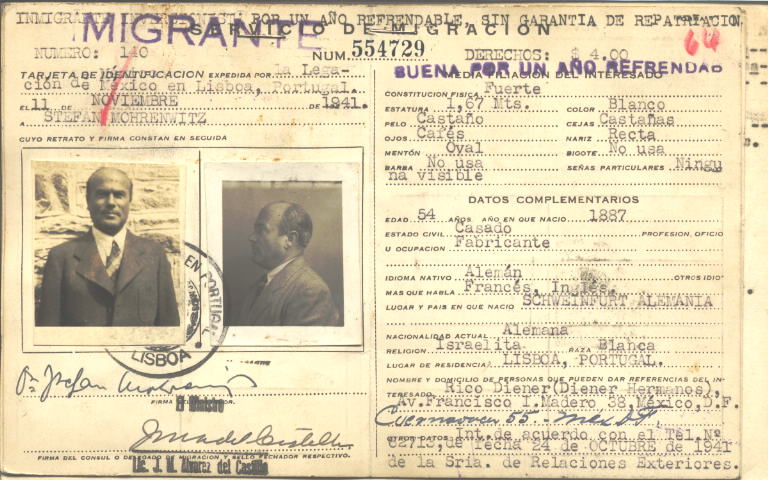 INMIGRANTE POR UN AÑO REFRENDABLE, SIN GARANTIA DE REPATRIACION
INMIGRANTE
SERVICIO DE MIGRACION
64
NUMERO: 140
NUM. 554729
DERECHOS: $ 4.00
TARJETA DE IDENTIFICACION EXPEDIDA POR la Lega-
ción de México en Lisboa, Portugal.
EL 11 DE NOVIEMBRE DE 1941.
A STEFAN MOHRENWITZ
CUYO RETRATO Y FIRMA CONSTAN EN SEGUIDA
EN PORTUGAL
LISBOA
Dr. Stefan Mohrenwitz
FIRMA DEL
El Ministro
FIRMA DEL CONSUL O DELEGADO DE MIGRACION Y SELLO FECHADOR RESPECTIVO.
Lic. J. M. Alvarez del Castillo
BUENA POR UN AÑO REFRENDAB
MEDIA FILIACION DEL INTERESADO
CONSTITUCION FISICA Fuerte
ESTATURA 1,67 Mts. COLOR Blanco
PELO Castaño CEJAS Castañas
OJOS Cafés NARIZ Recta
MENTÓN Oval BIGOTE No usa
BARBA No usa SEÑAS PARTICULARES Ningu
na visible
DATOS COMPLEMENTARIOS
EDAD 54 AÑOS. AÑO EN QUE NACIO 1887
ESTADO CIVIL Casado PROFESION, OFICIO
U OCUPACION Fabricante
IDIOMA NATIVO Alemán OTROS IDIO-
MAS QUE HABLA Francés, Inglés.
LUGAR Y PAIS EN QUE NACIO SCHWEINFURT ALEMANIA
NACIONALIDAD ACTUAL Alemana
RELIGION Israelita RAZA Blanca
LUGAR DE RESIDENCIA LISBOA, PORTUGAL.
NOMBRE Y DOMICILIO DE PERSONAS QUE PUEDEN DAR REFERENCIAS DEL IN-
TERESADO Rico Diener (Diener Hermanos),
Av. Francisco I. Madero 58, México, D. F.
Cuernavaca 55 - Mex D.F.
OTROS DATOS Int. de acuerdo con el Tel. Nº
62715, de fecha 24 de OCTUBRE de 1941
de la Sría. de Relaciones Exteriores.